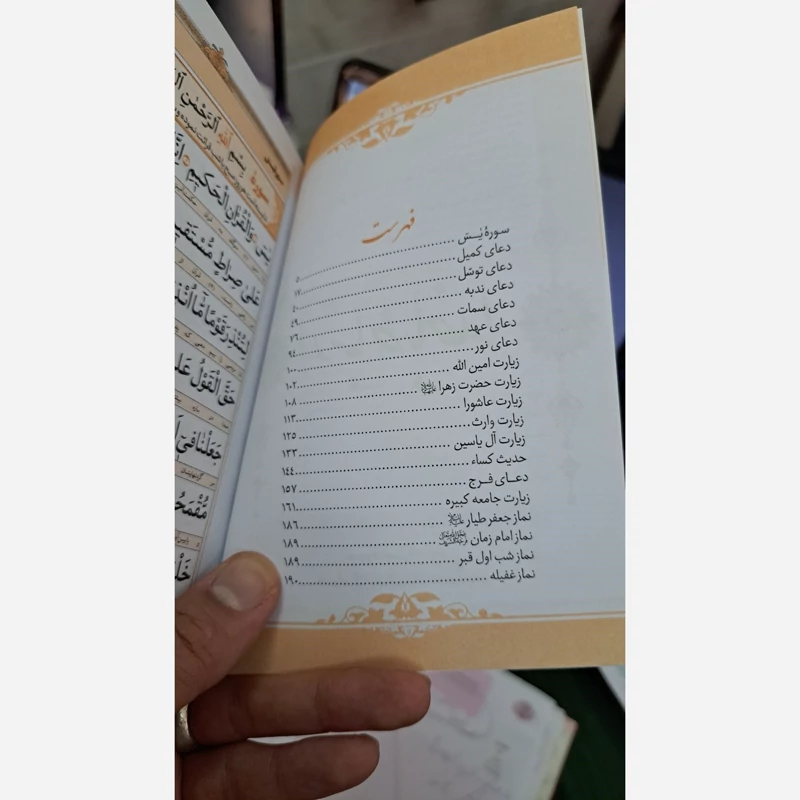 فهرست
سورهٔ یٰسٓ ........ ۵
دعای کمیل ........ ۱۷
دعای توسّل ........ ۴۰
دعای ندبه ........ ۴۹
دعای سمات ........ ۷۶
دعای عهد ........ ۹۴
دعای نور ........ ۱۰۰
زیارت امین الله ........ ۱۰۲
زیارت حضرت زهرا ........ ۱۰۸
زیارت عاشورا ........ ۱۱۳
زیارت وارث ........ ۱۲۵
زیارت آل یاسین ........ ۱۳۳
حدیث کساء ........ ۱۴۴
دعـای فـرج ........ ۱۵۷
زیارت جامعه کبیره ........ ۱۶۱
نماز جعفر طیار ........ ۱۸۶
نماز امام زمان ........ ۱۸۹
نماز شب اول قبر ........ ۱۸۹
نماز غفیله ........ ۱۹۰
بِسْمِ اللهِ الرَّحْمٰنِ
وَالْقُرْاٰنِ الْحَكيمِ
عَلىٰ صِراطٍ
لِتُنْذِرَ قَوْمًا مٰا
حَقَّ الْقَوْلُ
جَعَلْنٰا في